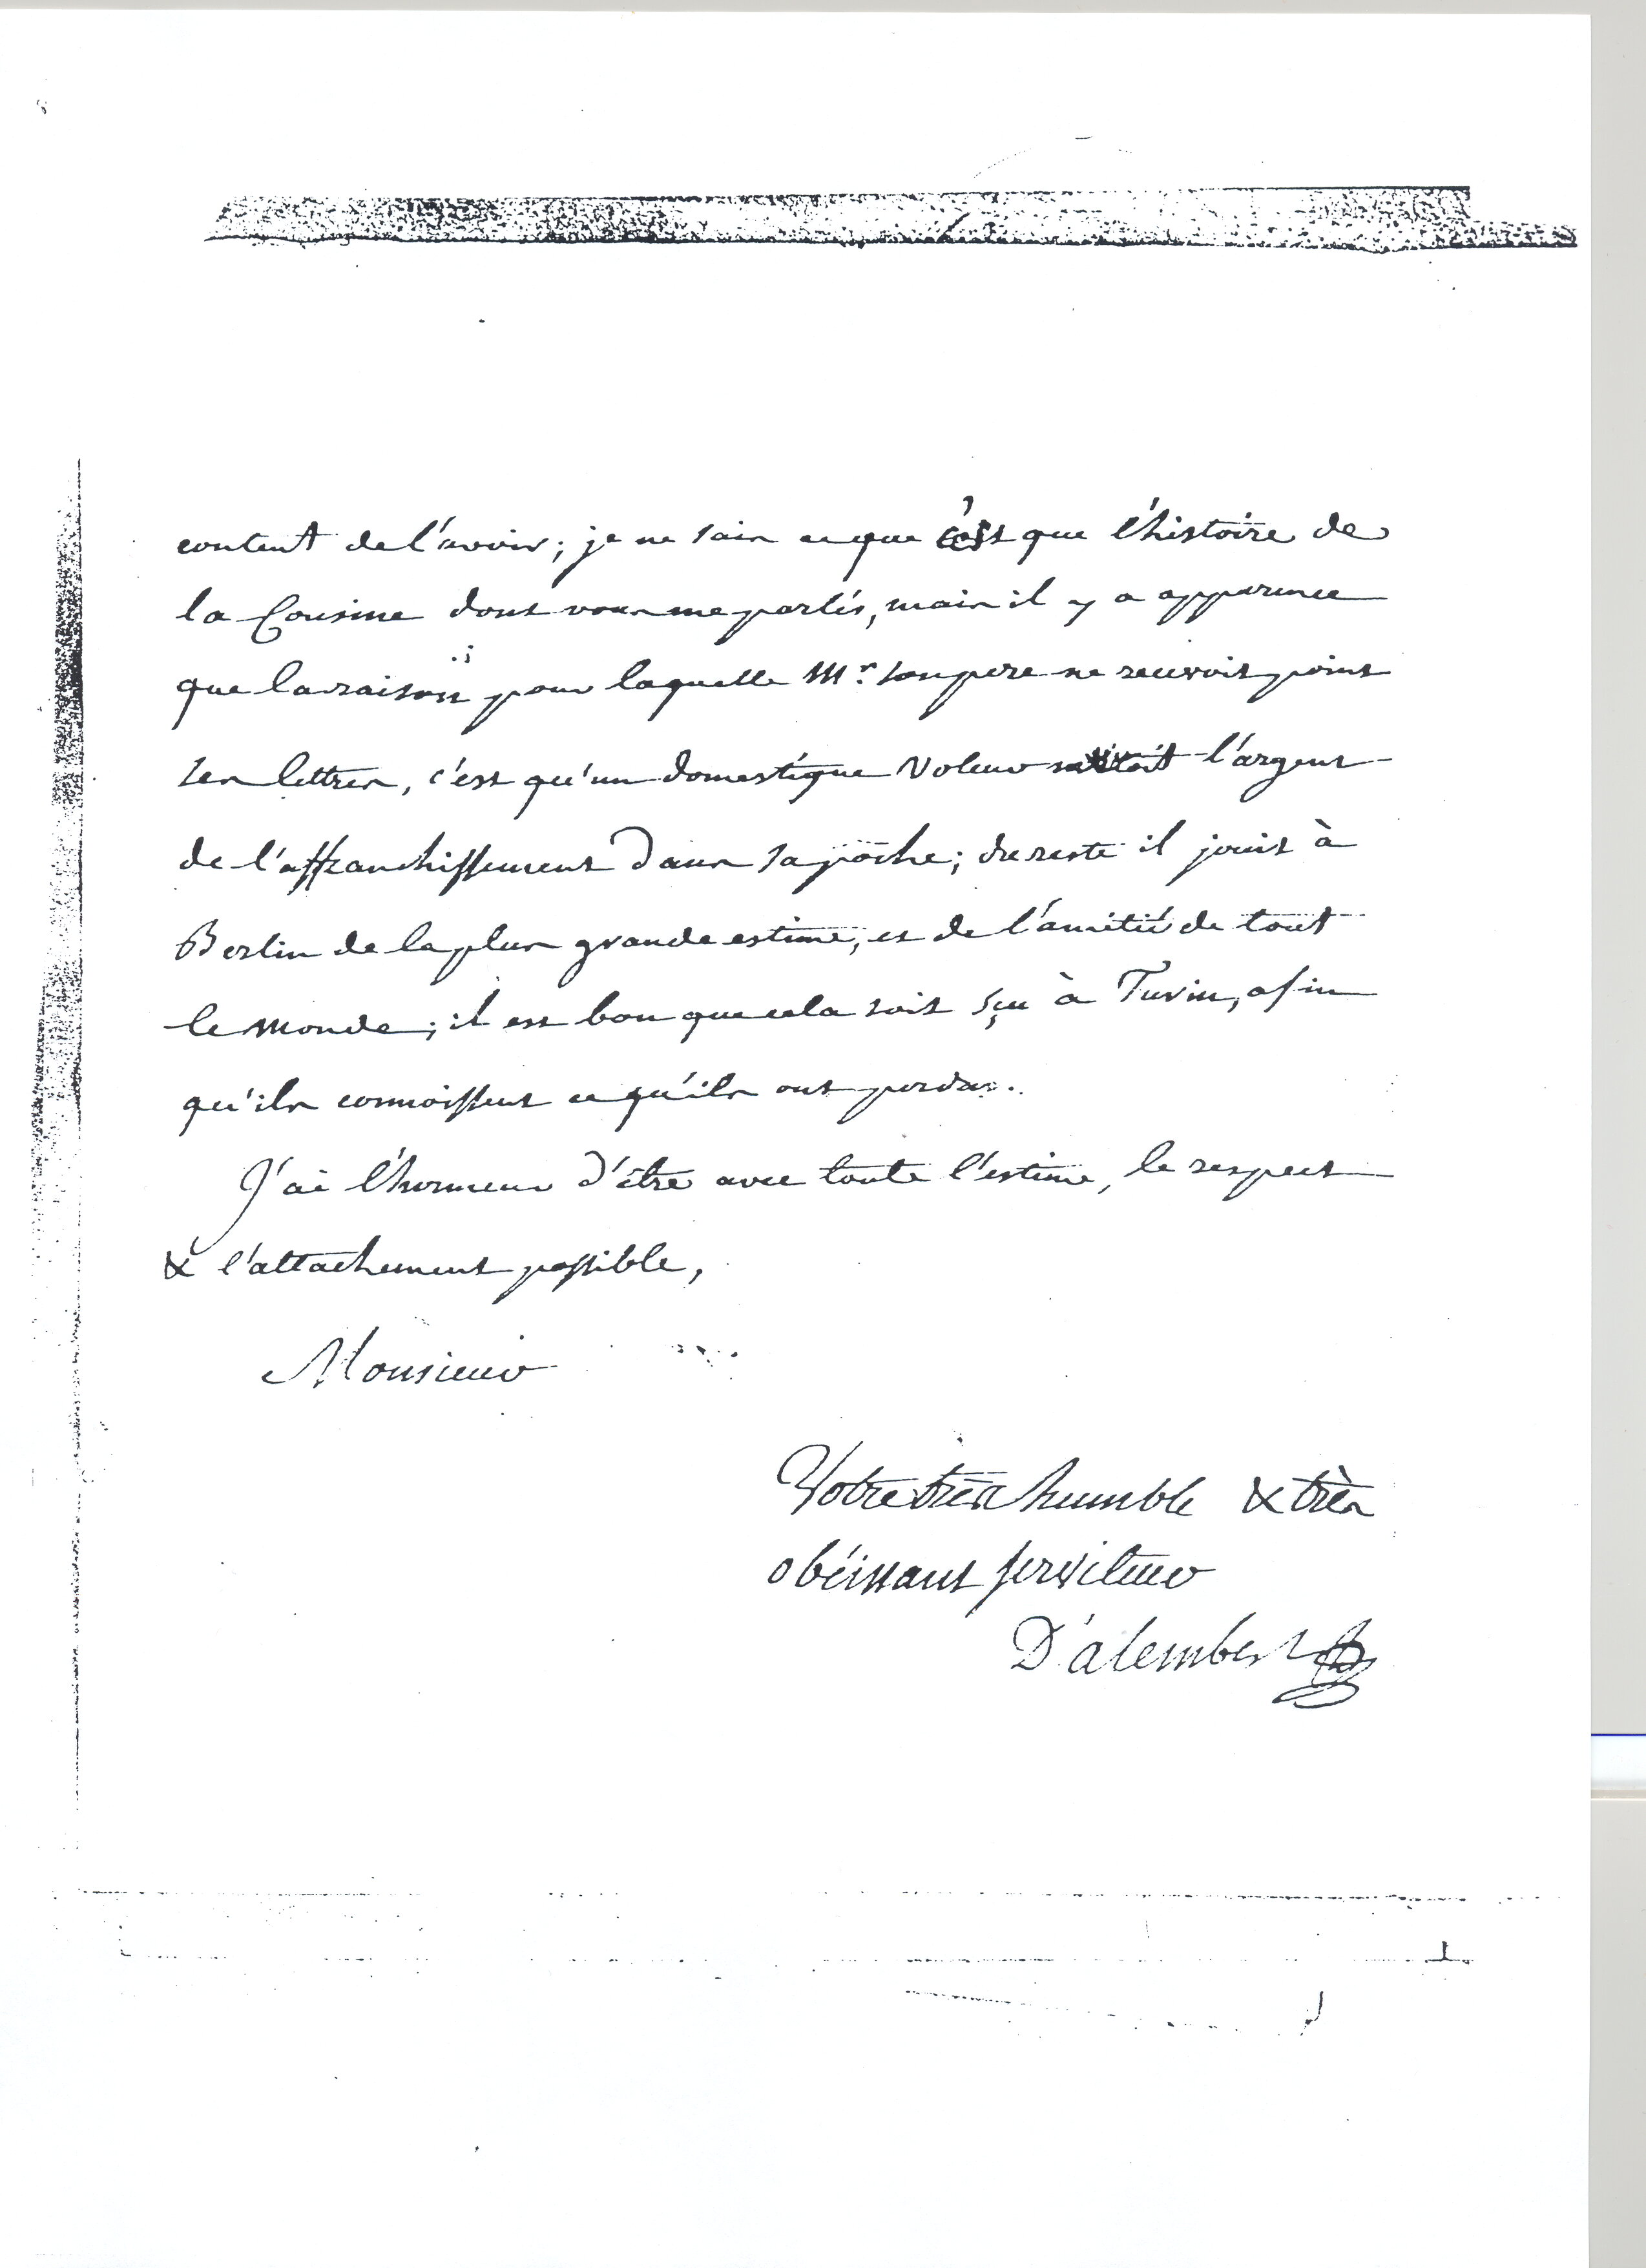 content de l'avoir; je ne sais ce que c'est que l'histoire de
la Cousine dont vous me parlés, mais il y a apparence
que la raison pour laquelle Mr. son pere ne recevoit point
ses lettres, c'est qu'un domestique voleur mettoit l'argent
de l'affranchissement dans sa poche; du reste il jouit à
Berlin de la plus grande estime, et de l'amitié de tout
le monde; il est bon que cela soit sçu à Turin, afin
qu'ils connoissent ce qu'ils ont perdu.
J'ai l'honneur d'être avec toute l'estime, le respect
& l'attachement possible,
Monsieur
Votre très humble & très
obéissant serviteur
D'alembert